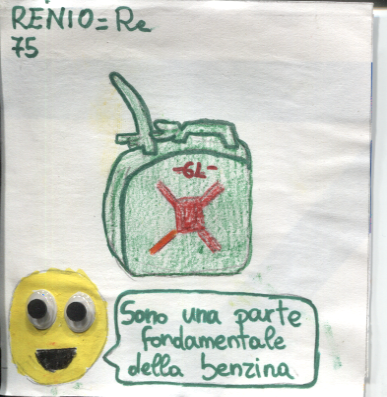 RENIO=Re
75
-6L-
Sono una parte
fondamentale
della benzina